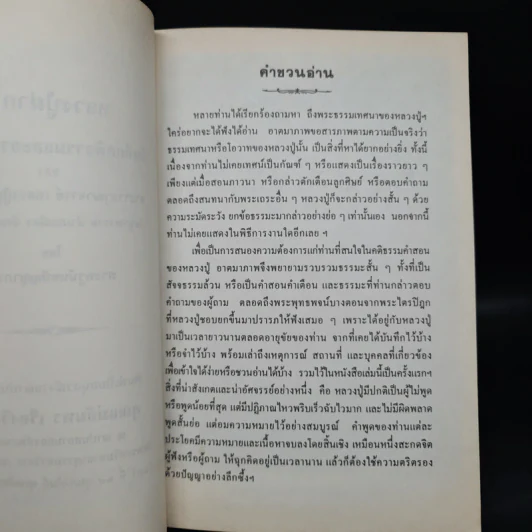 คำชวนอ่าน
หลายท่านได้เรียกร้องถามหา ถึงพระธรรมเทศนาของหลวงปู่ฯ
ใคร่อยากจะได้ฟังได้อ่าน อาตมาภาพขอสารภาพตามความเป็นจริงว่า
ธรรมเทศนาหรือโอวาทของหลวงปู่นั้น เป็นสิ่งที่หาได้ยากอย่างยิ่ง ทั้งนี้
เนื่องจากท่านไม่เคยเทศน์เป็นกัณฑ์ ๆ หรือแสดงเป็นเรื่องราวยาว ๆ
เพียงแต่เมื่อสอนภาวนา หรือกล่าวตักเตือนลูกศิษย์ หรือตอบคำถาม
ตลอดถึงสนทนากับพระเถระอื่น ๆ หลวงปู่ก็จะกล่าวอย่างสั้น ๆ ด้วย
ความระมัดระวัง ยกข้อธรรมะมากล่าวอย่างย่อ ๆ เท่านั้นเอง นอกจากนี้
ท่านไม่เคยแสดงในพิธีการงานใดอีกเลย ฯ
เพื่อเป็นการสนองความต้องการแก่ท่านที่สนใจในคติธรรมคำสอน
ของหลวงปู่ อาตมาภาพจึงพยายามรวบรวมธรรมะสั้น ๆ ทั้งที่เป็น
สัจจธรรมล้วน หรือเป็นคำสอนคำเตือน และธรรมะที่ท่านกล่าวตอบ
คำถามของผู้ถาม ตลอดถึงพระพุทธพจน์บางตอนจากพระไตรปิฎก
ที่หลวงปู่ชอบยกขึ้นมาปรารภให้ฟังเสมอ ๆ เพราะได้อยู่กับหลวงปู่
มาเป็นเวลายาวนานตลอดอายุขัยของท่าน จากที่เคยได้บันทึกไว้บ้าง
หรือจำไว้บ้าง พร้อมเล่าถึงเหตุการณ์ สถานที่ และบุคคลที่เกี่ยวข้อง
เพื่อเข้าใจได้ง่ายหรือชวนอ่านได้บ้าง รวมไว้ในหนังสือเล่มนี้เป็นครั้งแรกฯ
สิ่งที่น่าสังเกตและน่าอัศจรรย์อย่างหนึ่ง คือ หลวงปู่มีปกติเป็นผู้ไม่พูด
หรือพูดน้อยที่สุด แต่มีปฏิภาณไหวพริบเร็วฉับไวมาก และไม่มีผิดพลาด
พูดสั้นย่อ แต่อมความหมายไว้อย่างสมบูรณ์ คำพูดของท่านแต่ละ
ประโยคมีความหมายและเนื้อหาจบลงโดยสิ้นเชิง เหมือนหนึ่งสะกดจิต
ผู้ฟังหรือผู้ถาม ให้ฉุกคิดอยู่เป็นเวลานาน แล้วก็ต้องใช้ความตริตรอง
ด้วยปัญญาอย่างลึกซึ้งฯ